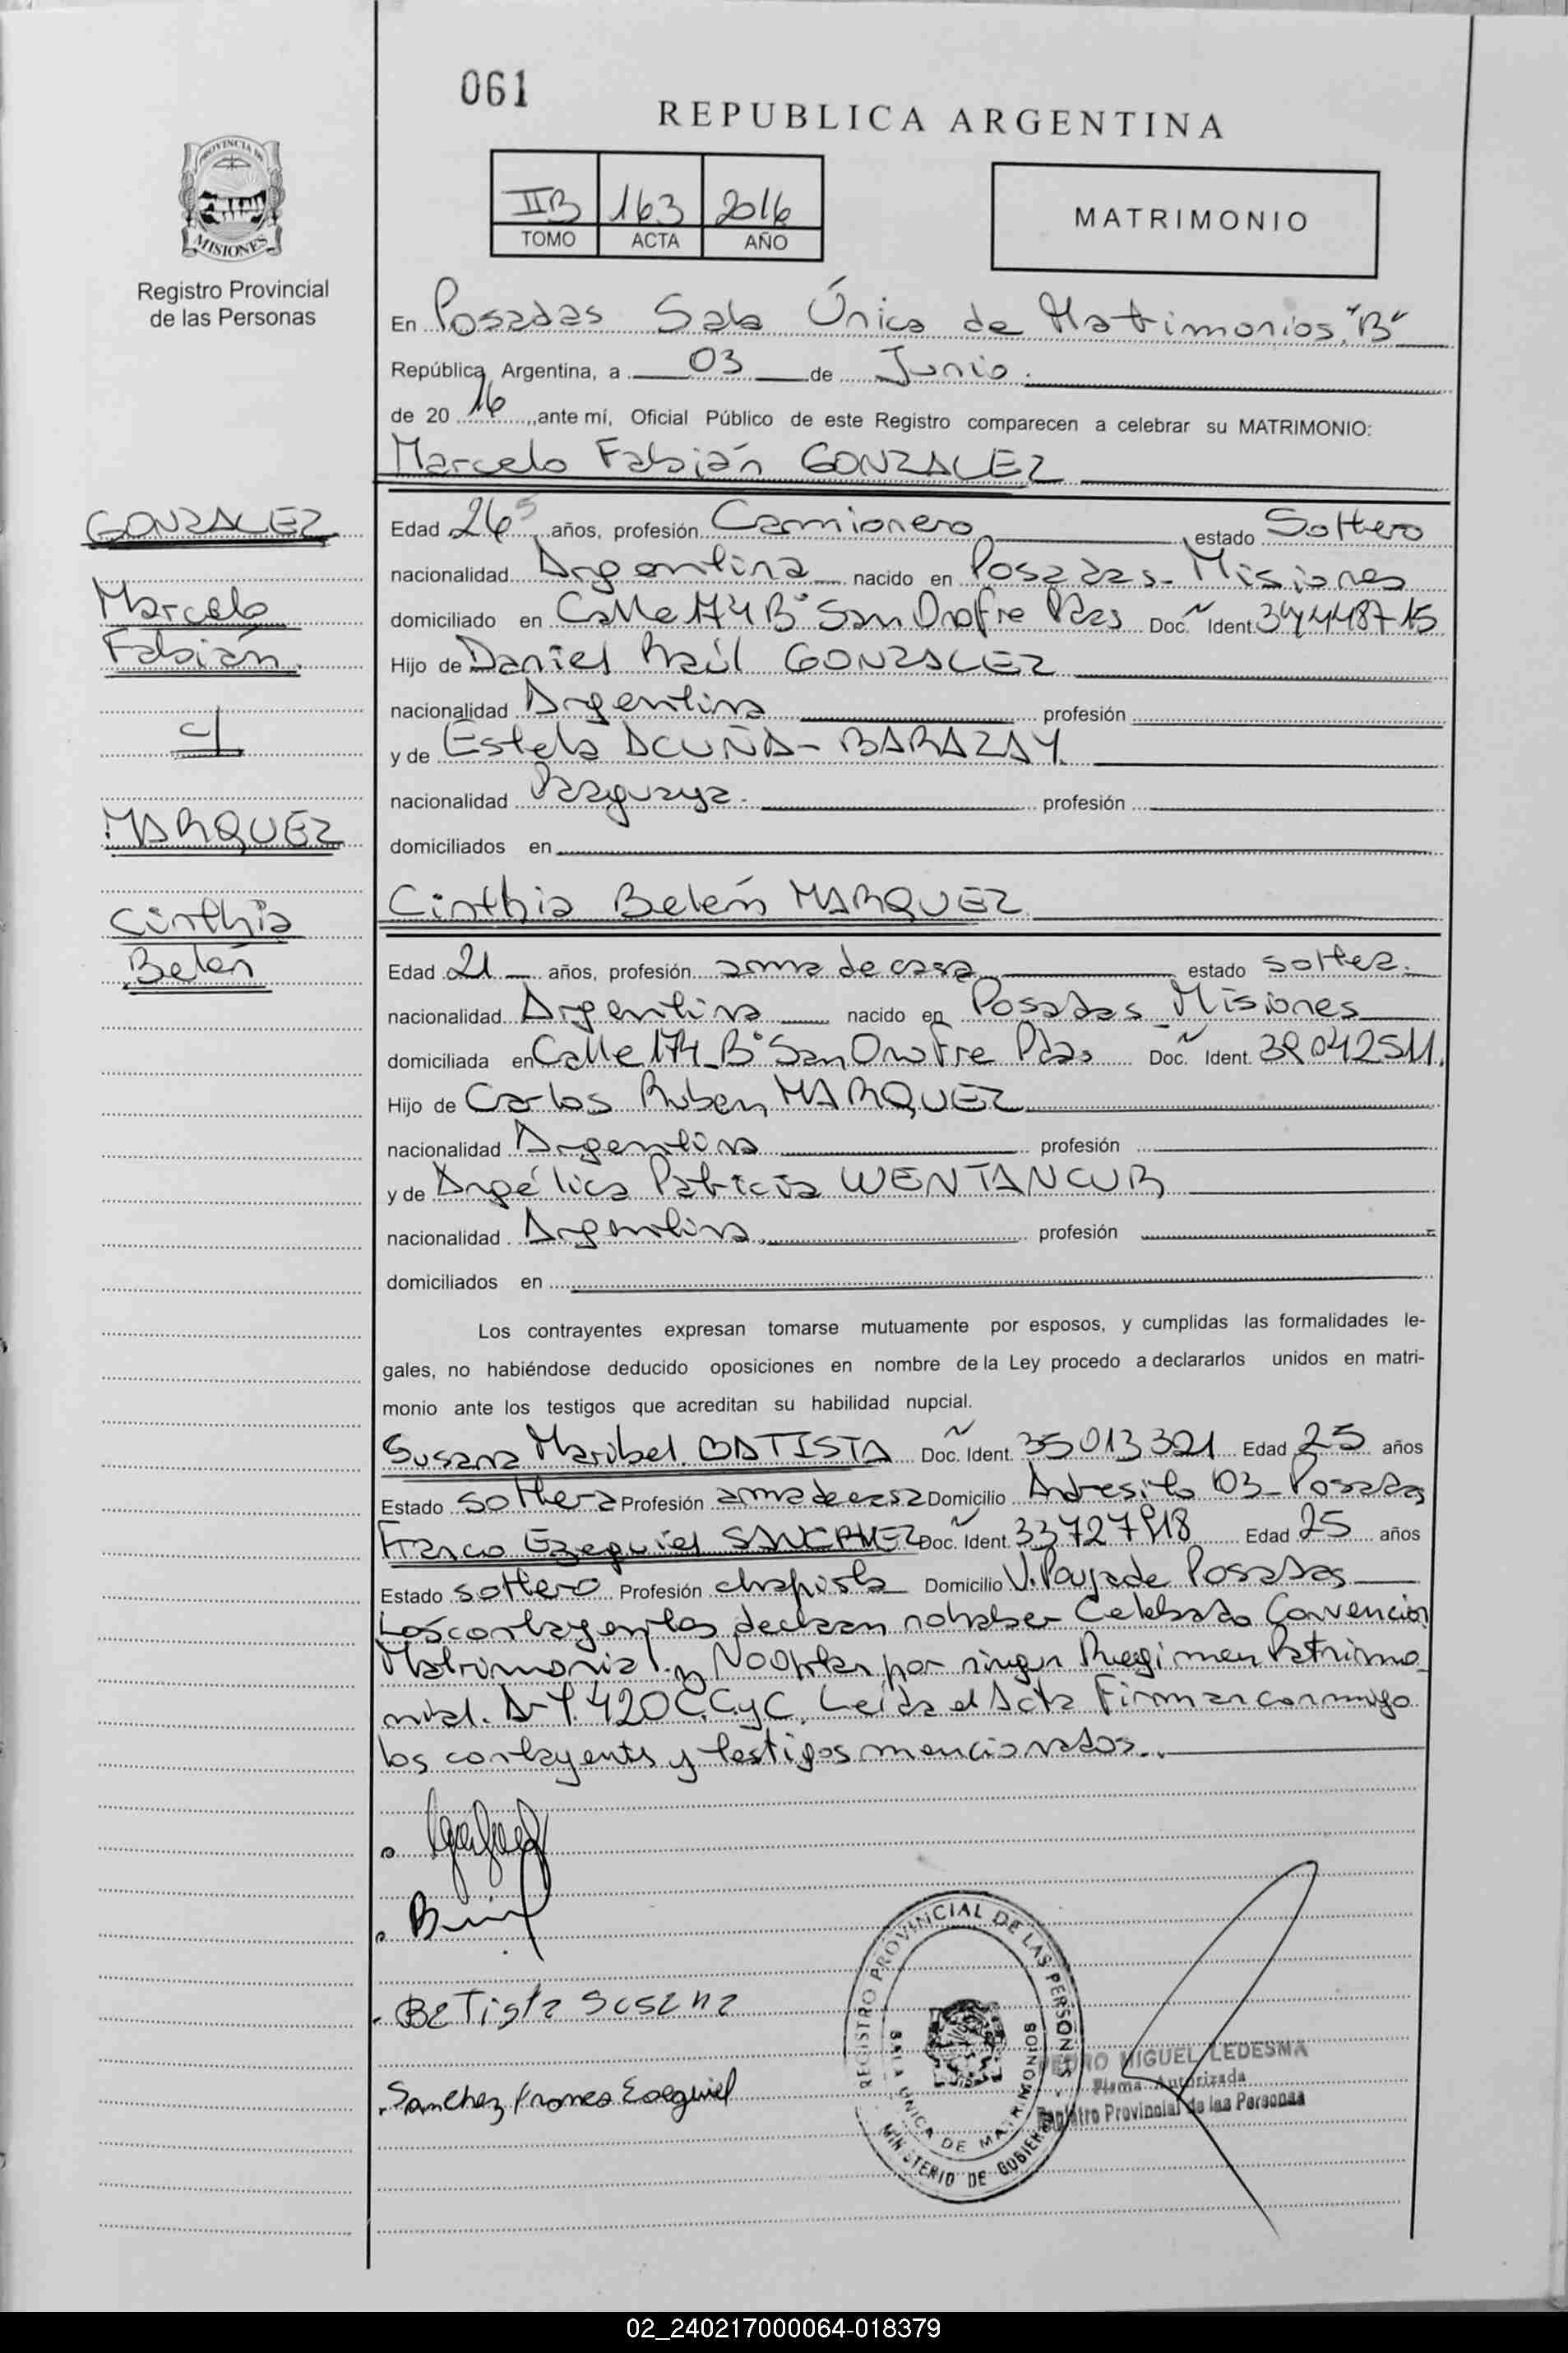 061
REPUBLICA ARGENTINA
PROVINCIA DE
MISIONES
Registro Provincial
de las Personas
IIB 163 2016
TOMO ACTA AÑO
MATRIMONIO
En Posadas Sala Única de Matrimonios "B"
República Argentina, a 03 de Junio
de 20 16, ante mí, Oficial Público de este Registro comparecen a celebrar su MATRIMONIO:
Marcelo Fabián GONZALEZ
GONZALEZ
Marcelo
Fabián
c/
MARQUEZ
Cinthia
Belén
Edad 26 años, profesión Camionero estado Soltero
nacionalidad Argentina nacido en Posadas - Misiones
domiciliado en Calle 174 B° San Onofre Pdas Doc. Ident. 34448715
Hijo de Daniel Raúl GONZALEZ
nacionalidad Argentina profesión
y de Estela ACUÑA - BARAZAY
nacionalidad Paraguaya profesión
domiciliados en
Cinthia Belén MARQUEZ
Edad 21 años, profesión ama de casa estado soltera.
nacionalidad Argentina nacido en Posadas - Misiones
domiciliada en Calle 174 - B° San Onofre Pdas Doc. Ident. 39042511.
Hijo de Carlos Ruben MARQUEZ
nacionalidad Argentina profesión
y de Angélica Patricia WENTANCUR
nacionalidad Argentina profesión
domiciliados en
Los contrayentes expresan tomarse mutuamente por esposos, y cumplidas las formalidades le-
gales, no habiéndose deducido oposiciones en nombre de la Ley procedo a declararlos unidos en matri-
monio ante los testigos que acreditan su habilidad nupcial.
Susana Maribel BATISTA Doc. Ident. 35013321 Edad 25 años
Estado soltera Profesión ama de casa Domicilio Andresito 103 - Posadas
Franco Ezequiel SANCHEZ Doc. Ident. 33727918 Edad 25 años
Estado soltero Profesión chapista Domicilio Posadas
Los contrayentes declaran no haber Celebrado Convencion
Matrimonial y No Optan por ningun Regimen Patrimo
nial. Art. 420 C.C.y C. Leída el Acta Firman conmigo
los contrayents y testigos mencionados.
Batista Susana
Sanchez Franco Ezequiel
REGISTRO PROVINCIAL DE LAS PERSONAS - MINISTERIO DE GOBIERNO
SALA UNICA DE MATRIMONIOS
PEDRO MIGUEL LEDESMA
Firma Autorizada
Registro Provincial de las Personas
02_240217000064-018379